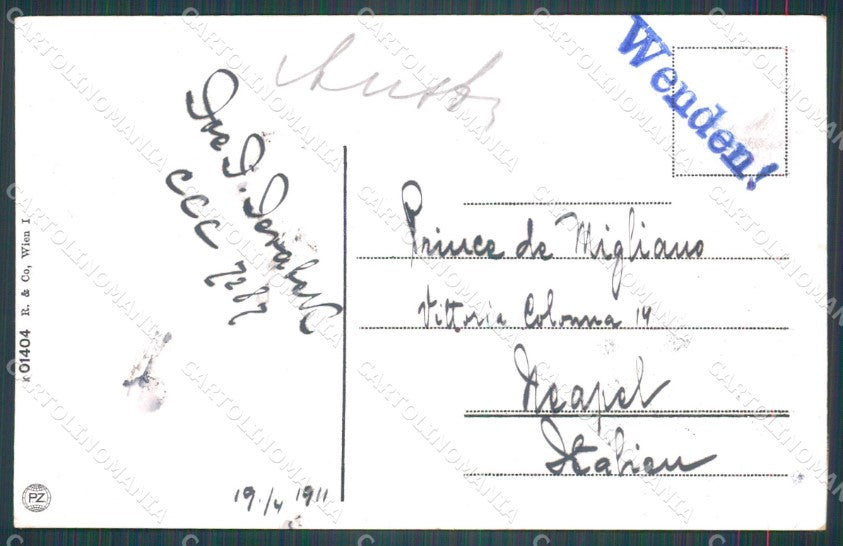 Wenden!
CCC 7287
Prince de Migliano
Vittoria Colonna 14
Neapel
Italien
19./4 1911
01404 R. & Co., Wien I
PZ
CARTOLINOMANIA